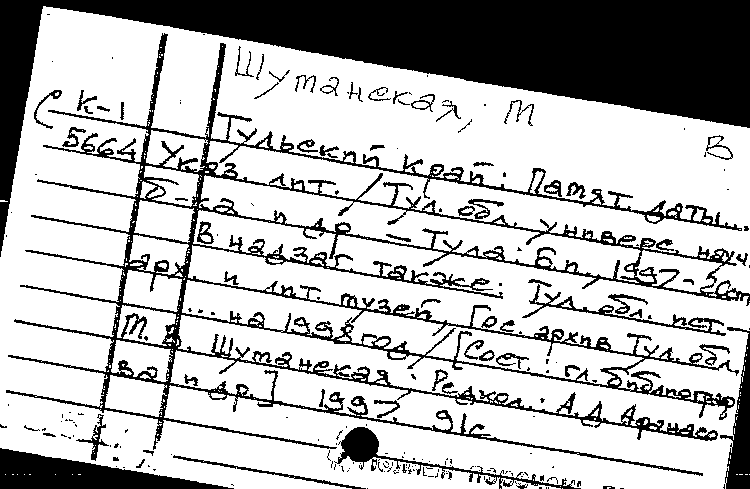 Шуманская, М
В
К-1
5664
Тульский край: Памят. даты...
Указ. лит. / Тул. обл. универс. науч.
б-ка и др. – Тула: Б.и., 1997-20см
В надзаг. также: Тул. обл. ист.-
арх. и лит. музей, Гос. архив Тул. обл.
... на 1998 год / [Сост.: гл. библиограф
М. В. Шуманская; Редкол.: А.Д. Афанасо-
ва и др.] 1997. 91с.